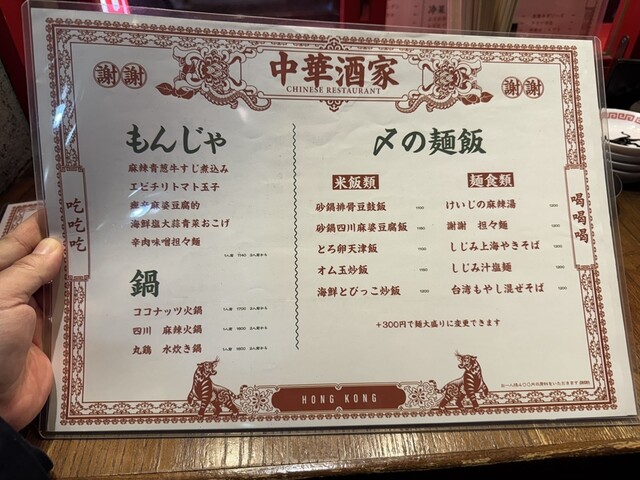 謝 謝
中華酒家
CHINESE RESTAURANT
謝 謝
吃吃吃
喝喝喝
もんじゃ
麻辣青葱牛すじ煮込み
エビチリトマト玉子
麻婆豆腐的
海鮮塩大蒜青菜おこげ
辛肉味噌担々麺
鍋
ココナッツ火鍋 1人前 1700 2人前から
四川 麻辣火鍋 1人前 1800 2人前から
丸鶏 水炊き鍋 1人前 1800 2人前から
〆の麺飯
米飯類
砂鍋排骨豆鼓飯
砂鍋四川麻婆豆腐飯
とろ卵天津飯
オム玉炒飯
海鮮とびっこ炒飯
麺食類
けいじの麻辣湯
謝謝 担々麺
しじみ上海やきそば
しじみ汁塩麺
台湾もやし混ぜそば
+300円で麺大盛りに変更できます
HONG KONG